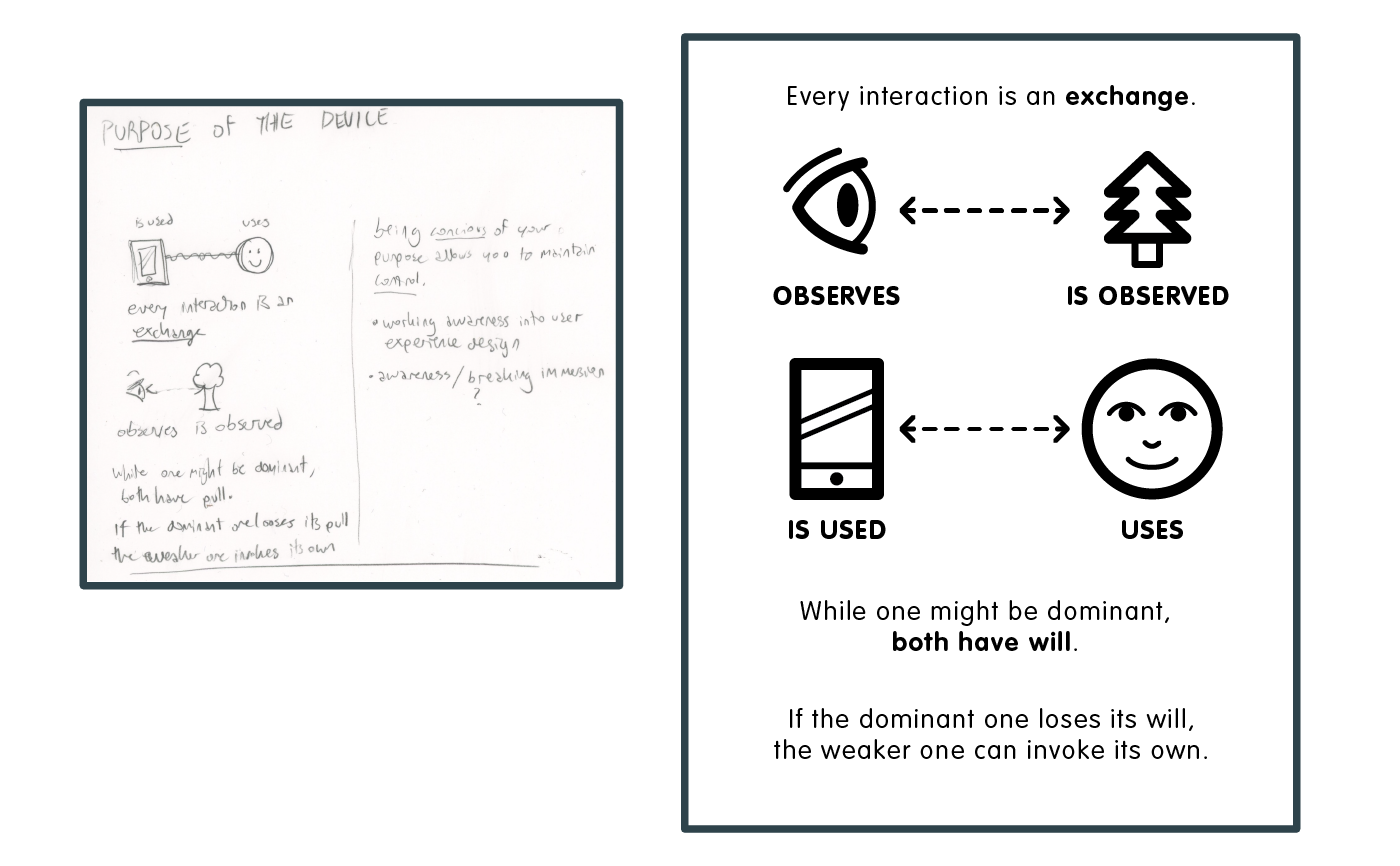 PURPOSE OF THE DEVICE
is used uses
every interaction is an
exchange
observes is observed
While one might be dominant,
both have pull.
If the dominant one looses its pull
the weaker one invokes its own
being concious of your
purpose allows you to maintain
control.
• working awareness into user
experience design
• awareness/breaking immersion
?
Every interaction is an exchange.
OBSERVES IS OBSERVED
IS USED USES
While one might be dominant,
both have will.
If the dominant one loses its will,
the weaker one can invoke its own.